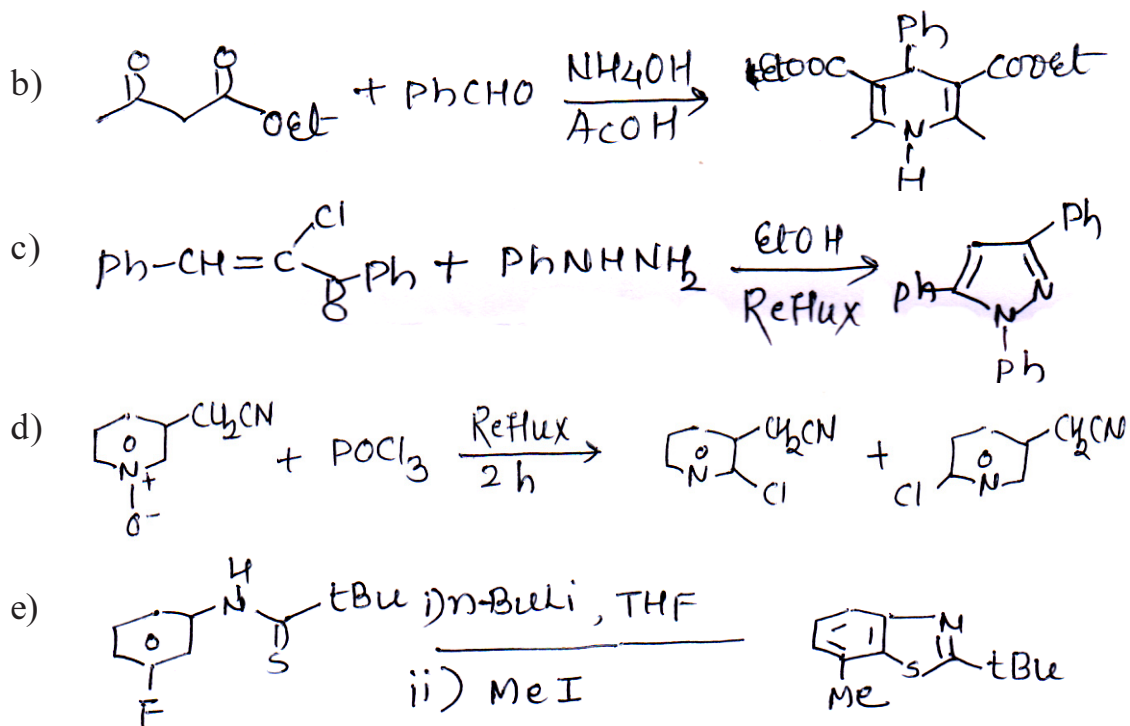 b) O O OEt + PhCHO NH4OH AcOH EtOOC Ph COOEt N H
c) Ph-CH=C Cl Ph O + PhNHNH2 EtOH Reflux Ph Ph N N Ph
d) CH2CN N+ O- + POCl3 Reflux 2h CH2CN N Cl + CH2CN Cl N
e) H N tBu S F i) n-BuLi, THF ii) MeI N S tBu Me